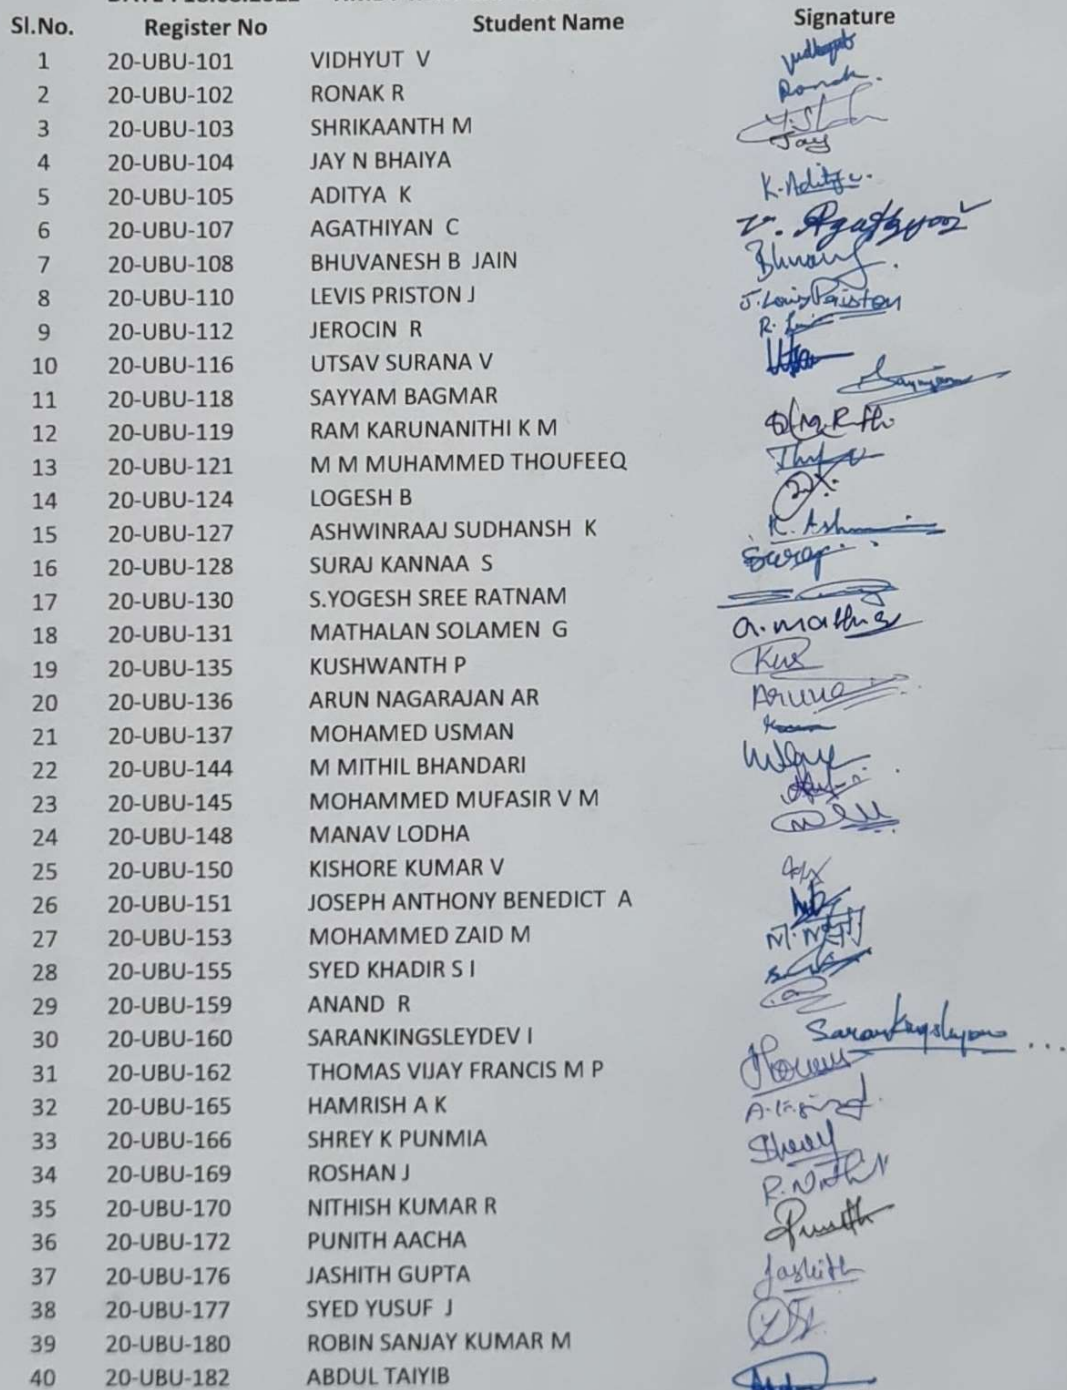 Sl.No. Register No Student Name Signature
1 20-UBU-101 VIDHYUT V
2 20-UBU-102 RONAK R Ronak.
3 20-UBU-103 SHRIKAANTH M
4 20-UBU-104 JAY N BHAIYA Jay
5 20-UBU-105 ADITYA K K. Aditya.
6 20-UBU-107 AGATHIYAN C
7 20-UBU-108 BHUVANESH B JAIN
8 20-UBU-110 LEVIS PRISTON J
9 20-UBU-112 JEROCIN R
10 20-UBU-116 UTSAV SURANA V
11 20-UBU-118 SAYYAM BAGMAR
12 20-UBU-119 RAM KARUNANITHI K M
13 20-UBU-121 M M MUHAMMED THOUFEEQ
14 20-UBU-124 LOGESH B
15 20-UBU-127 ASHWINRAAJ SUDHANSH K
16 20-UBU-128 SURAJ KANNAA S
17 20-UBU-130 S.YOGESH SREE RATNAM
18 20-UBU-131 MATHALAN SOLAMEN G
19 20-UBU-135 KUSHWANTH P
20 20-UBU-136 ARUN NAGARAJAN AR
21 20-UBU-137 MOHAMED USMAN
22 20-UBU-144 M MITHIL BHANDARI
23 20-UBU-145 MOHAMMED MUFASIR V M
24 20-UBU-148 MANAV LODHA
25 20-UBU-150 KISHORE KUMAR V
26 20-UBU-151 JOSEPH ANTHONY BENEDICT A
27 20-UBU-153 MOHAMMED ZAID M
28 20-UBU-155 SYED KHADIR S I
29 20-UBU-159 ANAND R
30 20-UBU-160 SARANKINGSLEYDEV I
31 20-UBU-162 THOMAS VIJAY FRANCIS M P
32 20-UBU-165 HAMRISH A K
33 20-UBU-166 SHREY K PUNMIA Shrey
34 20-UBU-169 ROSHAN J
35 20-UBU-170 NITHISH KUMAR R
36 20-UBU-172 PUNITH AACHA Punith
37 20-UBU-176 JASHITH GUPTA Jashith
38 20-UBU-177 SYED YUSUF J
39 20-UBU-180 ROBIN SANJAY KUMAR M
40 20-UBU-182 ABDUL TAIYIB